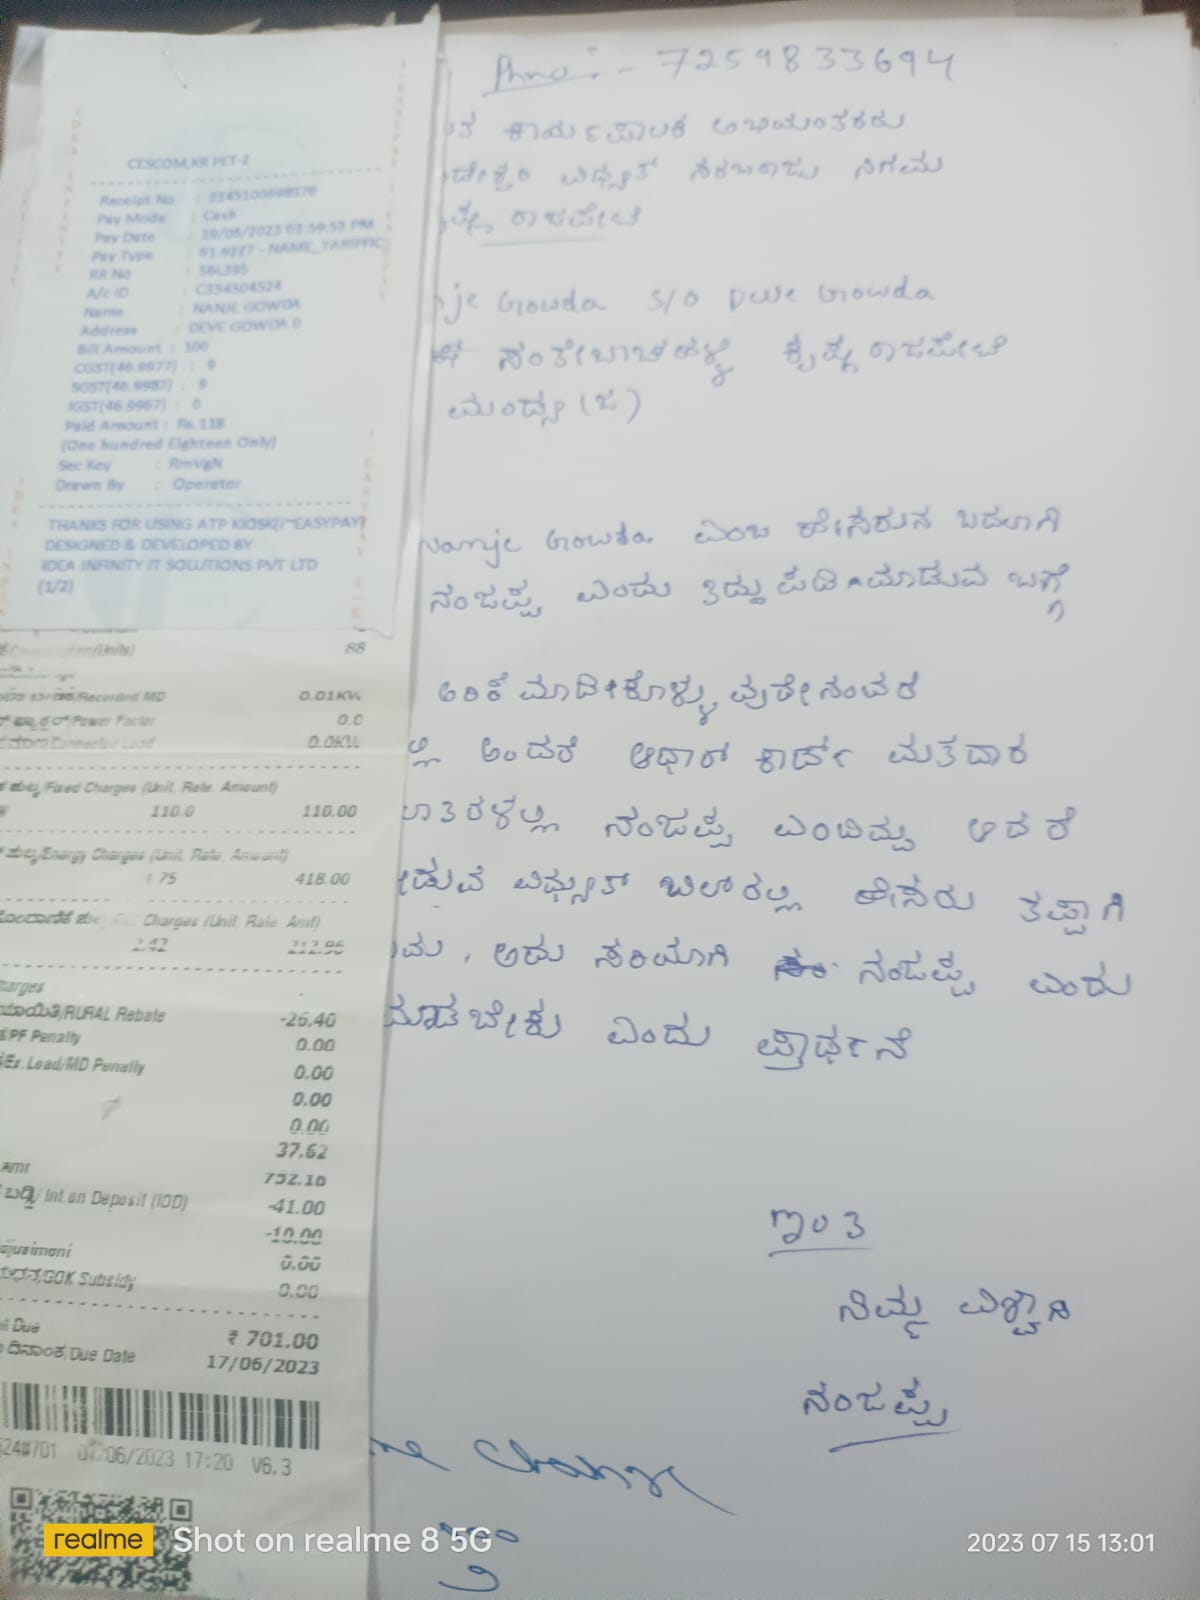 CESCOM,KR PET-2
Receipt No : 3345100698376
Pay Mode : Cash
Pay Date : 19/06/2023 03:59:53 PM
Pay Type : 61.9227 - NAME_TARIFFIC
RR No : SBL395
A/c ID : C354504524
Name : NANJE GOWDA
Address : DEVE GOWDA 0
Bill Amount : 100
CGST(46.9977) : 9
SGST(46.9987) : 9
IGST(46.9967) : 0
Paid Amount : Rs.118
(One hundred Eighteen Only)
Sec Key : RmVgN
Drawn By : Operator
THANKS FOR USING ATP KIOSK(I~EASYPAY)
DESIGNED & DEVELOPED BY
IDEA INFINITY IT SOLUTIONS PVT LTD
(1/2)
(Units) 88
/Recorded MD 0.01KW
/Power Factor 0.0
/Connected Load 0.0KW
ಶುಲ್ಕ/Fixed Charges (Unit, Rate, Amount)
110.0 110.00
ಶುಲ್ಕ/Energy Charges (Unit, Rate, Amount)
4.75 418.00
Charges (Unit Rate Amt)
2.42 212.96
harges
ರಿಯಾಯಿತಿ/RURAL Rebate -26.40
/PF Penalty 0.00
/Ex. Load/MD Penalty 0.00
0.00
0.00
37.62
Amt 752.18
ಬಡ್ಡಿ/ Int.on Deposit (IOD) -41.00
-10.00
djustment 0.00
/GOK Subsidy 0.00
Due ₹ 701.00
ದಿನಾಂಕ/Due Date 17/06/2023
524#701 02/06/2023 17:20 V6.3
Phno :- 7259833694
ಕಾರ್ಯಪಾಲಕ ಅಭಿಯಂತಕರು
ವಿಧ್ಯುತ್ ಸರಬರಾಜು ನಿಗಮ
ರಾಜಪೇಟೆ
nje Gowda S/O Deve Gowda
ಸಂತೇಬಾಚಹಳ್ಳಿ ಕೃಷ್ಣರಾಜಪೇಟೆ
ಮಂಡ್ಯ (ಜಿ)
Nanje Gowda ಎಂಬ ಹೇಸರುನ ಬದಲಾಗಿ
ನಂಜಪ್ಪ ಎಂದು ತಿದ್ದುಪಡಿ ಮಾಡುವ ಬಗ್ಗೆ
ಅರಿಕೆ ಮಾಡಿಕೊಳ್ಳು ವುದೇನಂದರೆ
ಲ್ಲಿ ಅಂದರೆ ಆಧಾರ್ ಕಾರ್ಡ್ ಮತದಾರ
ನಂಜಪ್ಪ ಎಂದಿದ್ದು ಆದರೆ
ವಿಧ್ಯುತ್ ಬಿಲ್‌ನಲ್ಲಿ ಹೇಸರು ತಪ್ಪಾಗಿ
ಅದು ಸರಿಯಾಗಿ ನಂಜಪ್ಪ ಎಂದು
ಮಾಡಬೇಕು ಎಂದು ಪ್ರಾರ್ಥನೆ
ಇಂತಿ
ನಿಮ್ಮ ವಿಶ್ವಾಸಿ
ನಂಜಪ್ಪ
realme Shot on realme 8 5G
2023 07 15 13:01